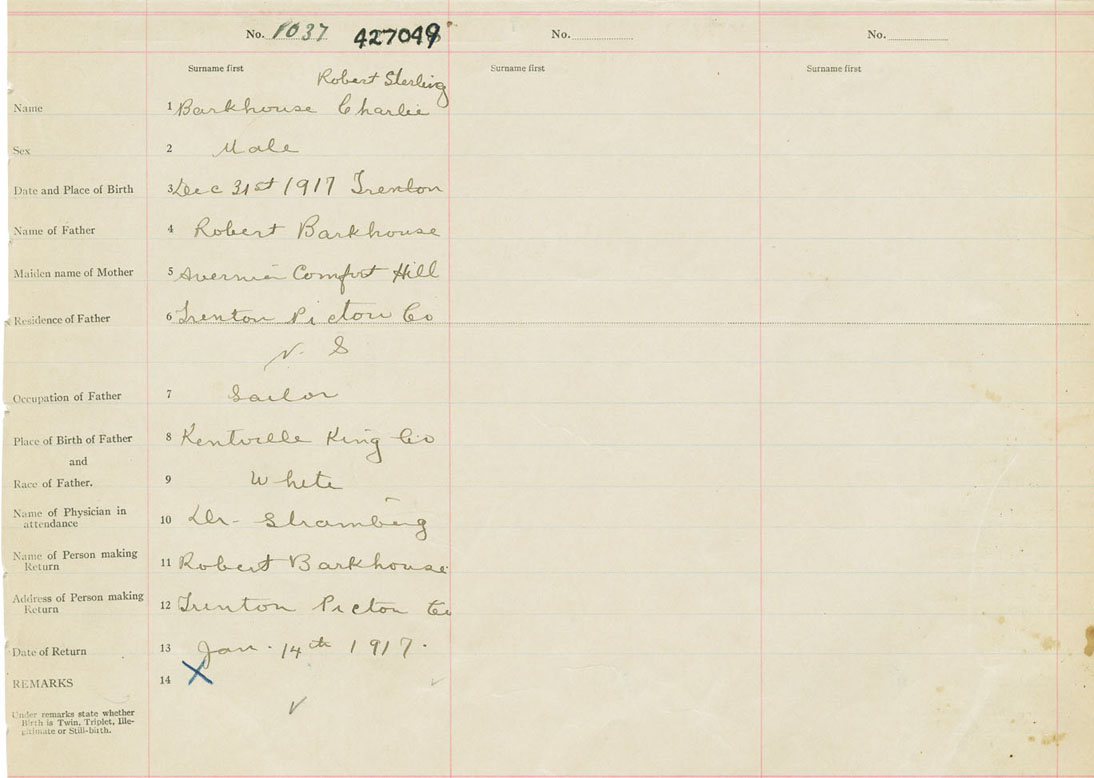 No. 1037 427049 No. No.
Surname first Surname first Surname first
Robert Sterling
Name 1 Barkhouse Charlie
Sex 2 Male
Date and Place of Birth 3 Dec 31st 1917 Trenton
Name of Father 4 Robert Barkhouse
Maiden name of Mother 5 Comfort Hill
Residence of Father 6 Trenton Pictou Co
N. S
Occupation of Father 7 Sailor
Place of Birth of Father 8 Kentville King Co
and
Race of Father. 9 White
Name of Physician in
attendance 10 Dr-
Name of Person making
Return 11 Robert Barkhouse
Address of Person making
Return 12 Trenton Picton Co
Date of Return 13 Jan. 14th 1917.
REMARKS 14 X
Under remarks state whether
Birth is Twin, Triplet, Ille-
gitimate or Still-birth.